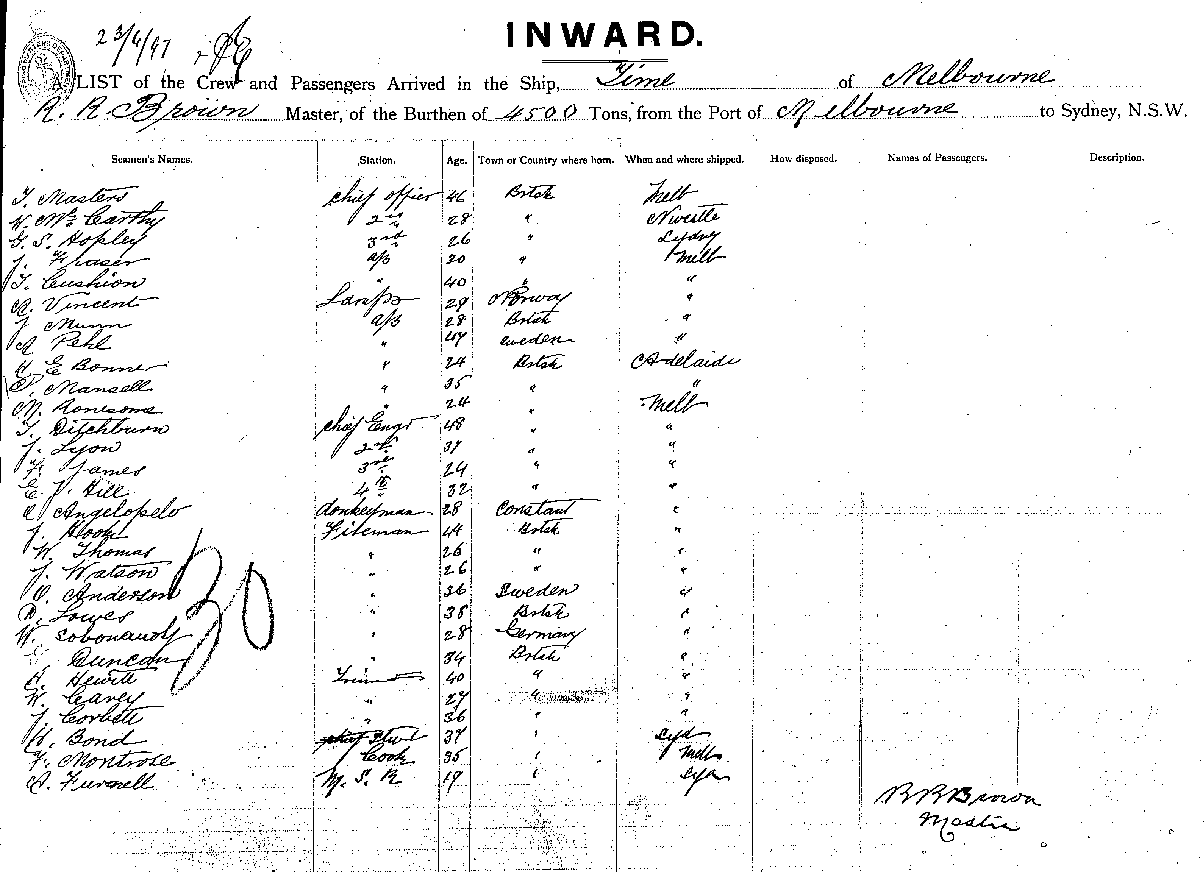 23/4/97
INWARD.
A LIST of the Crew and Passengers Arrived in the Ship, Time of Melbourne
R. R Brown Master, of the Burthen of 4500 Tons, from the Port of Melbourne to Sydney, N.S.W.
Seamen's Names. Station. Age. Town or Country where born. When and where shipped. How disposed. Names of Passengers. Description.
T. Masters chief officer 46 Brtsh Melb
W. McCarthy 2nd 28 " Nwcstle
G. S. Hopley 3rd 26 " Sydny
J. Fraser a/b 20 " Melb
T. Cushion " 40 " "
A. Vincent Lamps 29 Norway "
J. Munn a/b 28 Brtsh "
A Pehl " 47 Sweden "
H E Bonner " 24 Brtsh Adelaide
Mansell 35 " "
N. " 24 " Melb
T. Ditchburn chief Engr 48 " "
J. Lyon 2nd 37 " "
F. James 3rd 24 " "
E. J. Hill 4th 32 " "
Angelopelo donkeyman 28 Constant "
J. Hook Fireman 44 Brtsh "
W. Thomas " 26 " "
J. Watson " 26 " "
O. Anderson " 36 Sweden "
R. Lowes " 38 Brtsh "
W. " 28 Germany "
Duncan " 34 Brtsh "
H. Hewitt 40 " "
W. Carey " 27 " "
J. Corbett " 36 " "
H. Bond Stwd 37 " Syd
F. Montrose Cook 35 " Melb
A. Furnell M. S. R 19 " Syd
30
R R Brown
Master